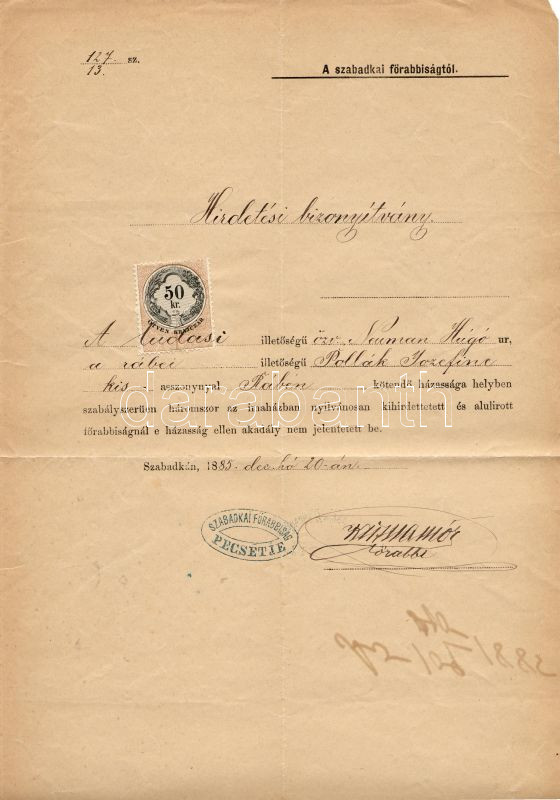 127. sz.
13.
A szabadkai főrabbiságtól.
Hirdetési bizonyítvány.
50
kr.
ÖTVEN KRAJCZÁR
A tudasi illetőségű özv. Neuman Hugó ur,
a rábei illetőségű Pollák Jozefine
kis - asszonynyal Rábén kötendő házassága helyben
szabályszerűen háromszor az imaházban nyilvánosan kihirdettetett és alulirott
főrabbiságnál e házasság ellen akadály nem jelentetett be.
Szabadkán, 1885. dec. hó 20-án.
SZABADKAI FŐRABBISÁG
PECSETJE
Kutna Mór
főrabbi
darabanth